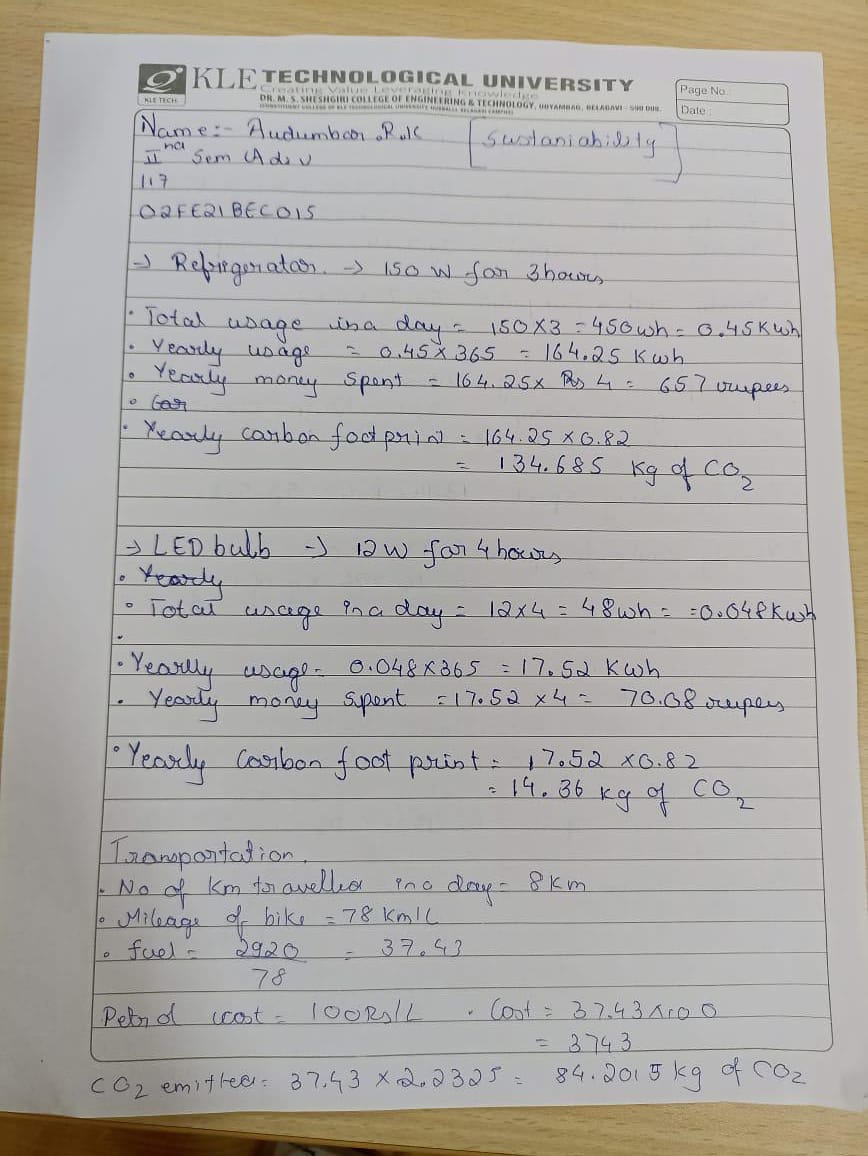 KLE TECH
KLE TECHNOLOGICAL UNIVERSITY
Creating Value Leveraging Knowledge
DR. M. S. SHESHGIRI COLLEGE OF ENGINEERING & TECHNOLOGY, UDYAMBAG, BELAGAVI - 590 008.
Page No.
Date :
Name:- Audumbar .R.K [Sustaniability]
IInd Sem
117
02FE21BEC015
→ Refrigerator. → 150 W for 3 hours
• Total usage in a day = 150X3 = 450wh = 0.45Kwh
• Yearly usage = 0.45 X 365 = 164.25 Kwh
• Yearly money Spent = 164.25x Rs 4 = 657 rupees
• Yearly carbon foot print = 164.25 X 0.82
= 134.685 Kg of CO2
→ LED bulb → 12 W for 4 hours
• Yearly
• Total usage in a day = 12x4 = 48wh = =0.048Kwh
• Yearlly usage = 0.048X365 = 17.52 Kwh
• Yearly money Spent = 17.52 x4 = 70.08 rupees
• Yearly Carbon foot print = 17.52 x0.82
= 14.36 kg of CO2
Transportation.
• No of Km travelled in a day = 8 Km
• Mileage of bike = 78 Km/L
• fuel = 2920 = 37.43
78
Petrol cost = 100Rs/L • Cost = 37.43 x 100
= 3743
CO2 emitted = 37.43 X 2.2325 = 84.2015 kg of CO2